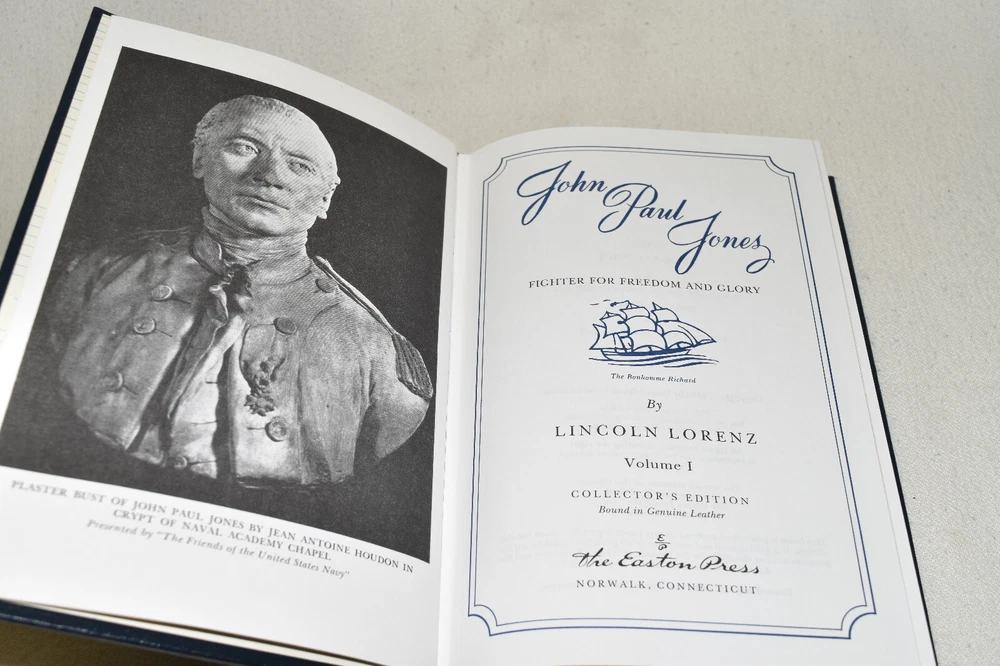 PLASTER BUST OF JOHN PAUL JONES BY JEAN ANTOINE HOUDON IN
CRYPT OF NAVAL ACADEMY CHAPEL
Presented by "The Friends of the United States Navy"
John Paul Jones
FIGHTER FOR FREEDOM AND GLORY
The Bonhomme Richard
By
LINCOLN LORENZ
Volume I
COLLECTOR'S EDITION
Bound in Genuine Leather
E/P
the Easton Press
NORWALK, CONNECTICUT